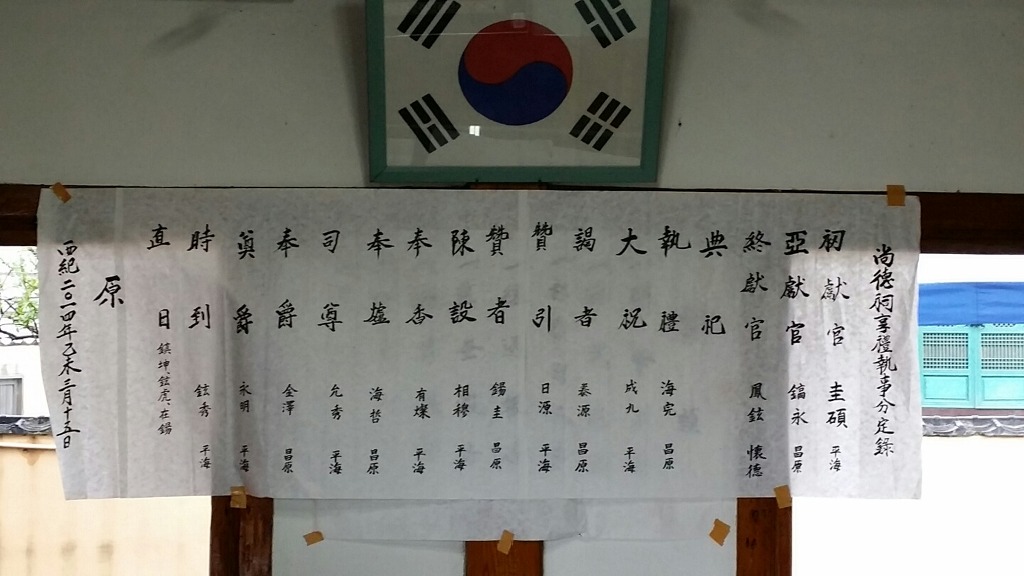 尚德祠享禮執事分定錄
初獻官 圭碩 平海
亞獻官 鎬永 昌原
終獻官 鳳鉉 懷德
典祀
執禮 海完 昌原
大祝 成九 平海
謁者 泰源 昌原
贊引 日源 平海
贊者 錫圭 昌原
陳設 相穆 平海
奉香 有燦 平海
奉爐 海哲 昌原
司尊 允秀 平海
奉爵 全澤 昌原
奠爵 永明 平海
時到 鉉秀 平海
直日 鎮坤 鉉虎 在錫
原
西紀二〇一四年乙未二月十五日